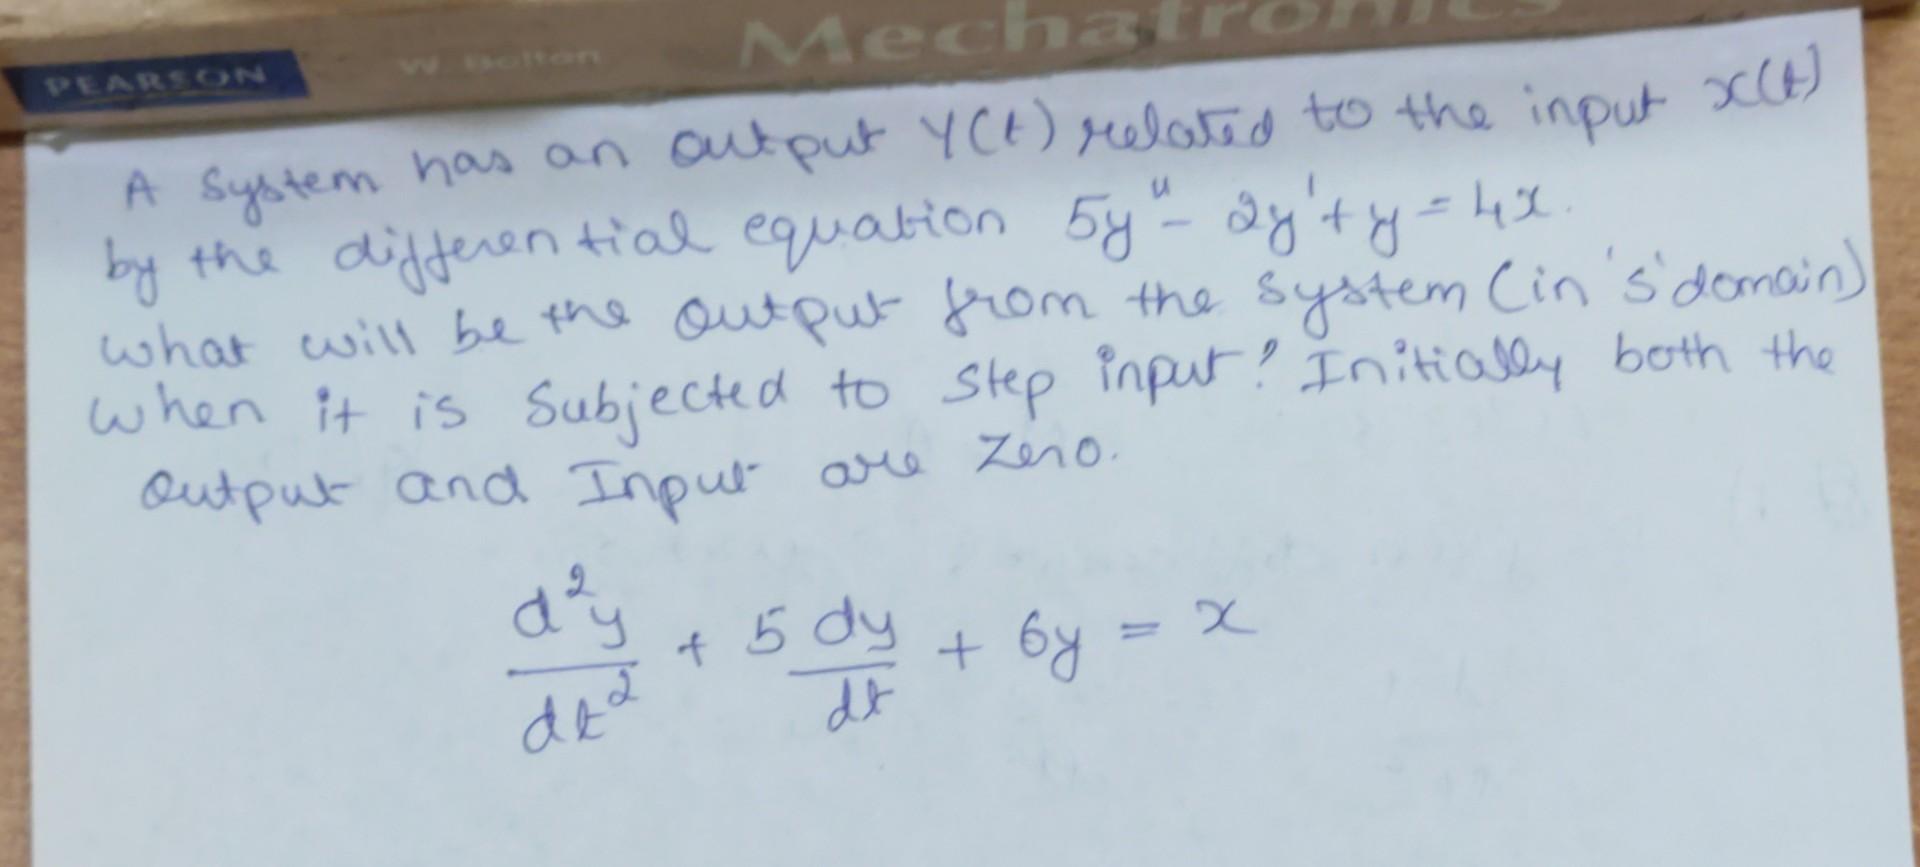 PEARSON W. Bolton Mechatronics
A System has an output Y(t) related to the input x(t)
by the differential equation 5y" - 2y' + y = 4x.
What will be the output from the system (in 's' domain)
when it is Subjected to step input? Initially both the
output and Input are Zero.
d²y/dt² + 5 dy/dt + 6y = x